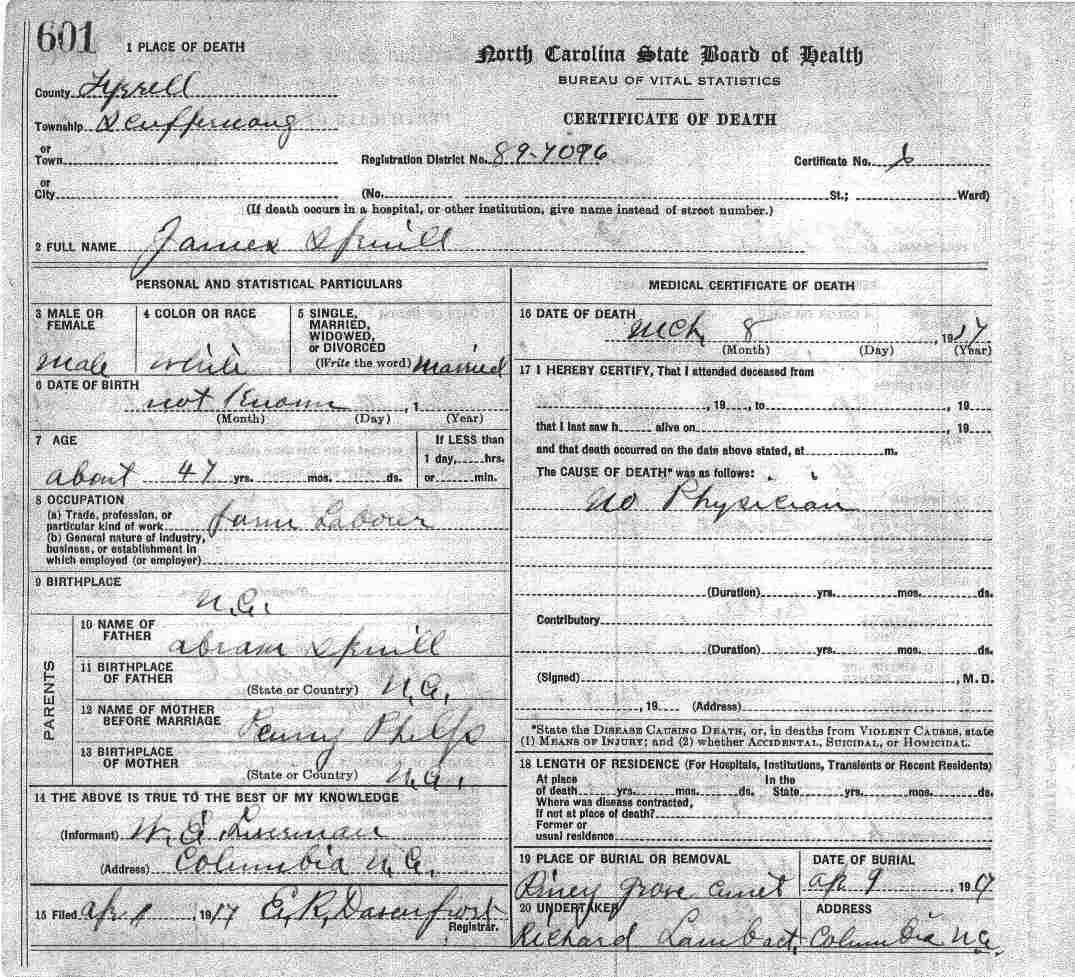 601
1 PLACE OF DEATH
North Carolina State Board of Health
BUREAU OF VITAL STATISTICS
CERTIFICATE OF DEATH
County Tyrrell
Township Scuppernong
or
Town
Registration District No. 89-7096
Certificate No.
or
City (No. St.; Ward)
(If death occurs in a hospital, or other institution, give name instead of street number.)
2 FULL NAME James Spruill
PERSONAL AND STATISTICAL PARTICULARS
3 MALE OR FEMALE
male
4 COLOR OR RACE
white
5 SINGLE, MARRIED, WIDOWED, or DIVORCED
(Write the word) married
6 DATE OF BIRTH
not Known , 1
(Month) (Day) (Year)
7 AGE
about 47 yrs. mos. ds.
If LESS than
1 day, hrs.
or min.
8 OCCUPATION
(a) Trade, profession, or
particular kind of work farm Laborer
(b) General nature of industry,
business, or establishment in
which employed (or employer)
9 BIRTHPLACE
N.C.
PARENTS
10 NAME OF FATHER
abram Spruill
11 BIRTHPLACE OF FATHER
(State or Country) N.C.
12 NAME OF MOTHER BEFORE MARRIAGE
Penny Phelps
13 BIRTHPLACE OF MOTHER
(State or Country) N.C.
14 THE ABOVE IS TRUE TO THE BEST OF MY KNOWLEDGE
(Informant) W. E. Liverman
(Address) Columbia N.C.
15 Filed Apr 1917 E. R. Davenport
Registrar.
MEDICAL CERTIFICATE OF DEATH
16 DATE OF DEATH
Mch 8 , 1917
(Month) (Day) (Year)
17 I HEREBY CERTIFY, That I attended deceased from
, 19 , to , 19
that I last saw h alive on , 19
and that death occurred on the date above stated, at m.
The CAUSE OF DEATH* was as follows:
No Physician
(Duration) yrs. mos. ds.
Contributory
(Duration) yrs. mos. ds.
(Signed) , M. D.
, 19 (Address)
*State the DISEASE CAUSING DEATH, or, in deaths from VIOLENT CAUSES, state
(1) MEANS OF INJURY; and (2) whether ACCIDENTAL, SUICIDAL, or HOMICIDAL.
18 LENGTH OF RESIDENCE (For Hospitals, Institutions, Transients or Recent Residents)
At place of death yrs. mos. ds. In the State yrs. mos. ds.
Where was disease contracted,
If not at place of death?
Former or
usual residence
19 PLACE OF BURIAL OR REMOVAL
Piney Grove Cemet
DATE OF BURIAL
Apr 9 , 1917
20 UNDERTAKER
Richard Lambert,
ADDRESS
Columbia N.C.